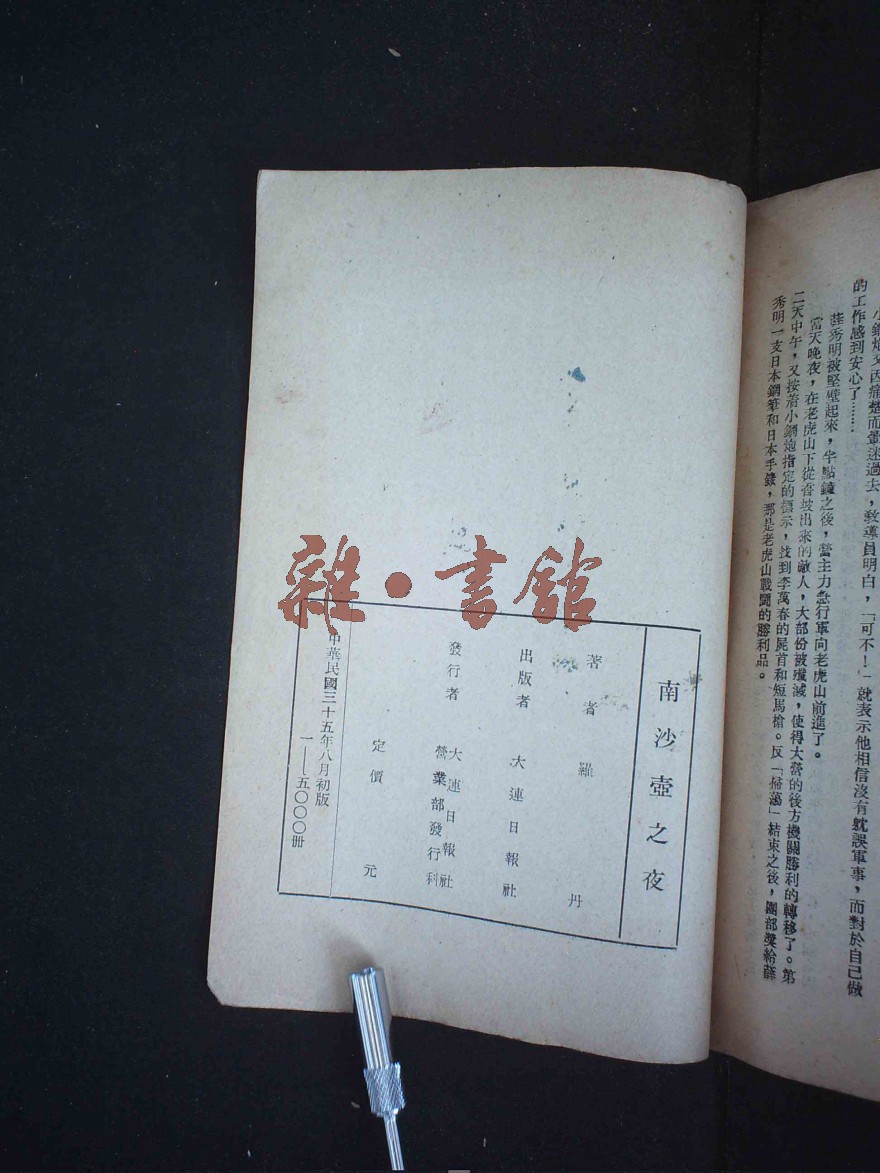 小鋼炮又因痛楚而暈迷過去，敎導員明白，「可不！」就表示他相信沒有躭誤軍事，而對於自己做
的工作感到安心了……
薛秀明被堅壁起來，半點鐘之後，營主力急行軍向老虎山前進了。
當天晚夜，在老虎山下從香坡出來的敵人，大部份被殲滅，使得大營的後方機關勝利的轉移了。第
二天中午，又按着小鋼炮指定的標示，找到李萬春的屍首和短馬槍。反「掃蕩」結束之後，團部獎給薛
秀明一支日本鋼筆和日本手錶，那是老虎山戰鬪的勝利品。
雜·書館
南沙壺之夜
著者 羅丹
出版者 大連日報社
發行者 大連日報社
營業部發行科
定價 元
中華民國三十五年八月初版
一——五〇〇〇冊